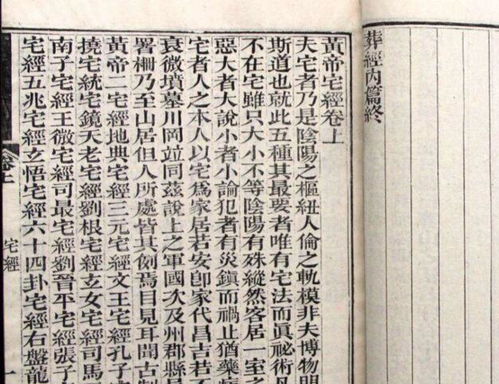 葬經內篇終
黃帝宅經卷上
夫宅者乃是陰陽之樞紐人倫之軌模非夫博物明
斯道也就此五種其最要者唯有宅法而眞祕術凡
不在宅雖只大小不等陰陽有殊縱然客居一室之
惡大者大說小者小論犯者有災鎭而禍止猶藥病
宅者人之本人以宅爲家居若安卽家代昌吉若不
衰微墳墓川岡竝同兹說上之軍國次及州郡縣
署柵乃至山居但人所處皆其例焉目見耳聞古制
黃帝二宅經地典宅經三元宅經文王宅經孔子
撓宅統宅鏡天老宅經劉根宅經玄女宅經司馬
南子宅經王微宅經司最宅經劉晉平宅經張子
宅經五兆宅經玄悟宅經六十四卦宅經右盤龍
卷上 宅經 一